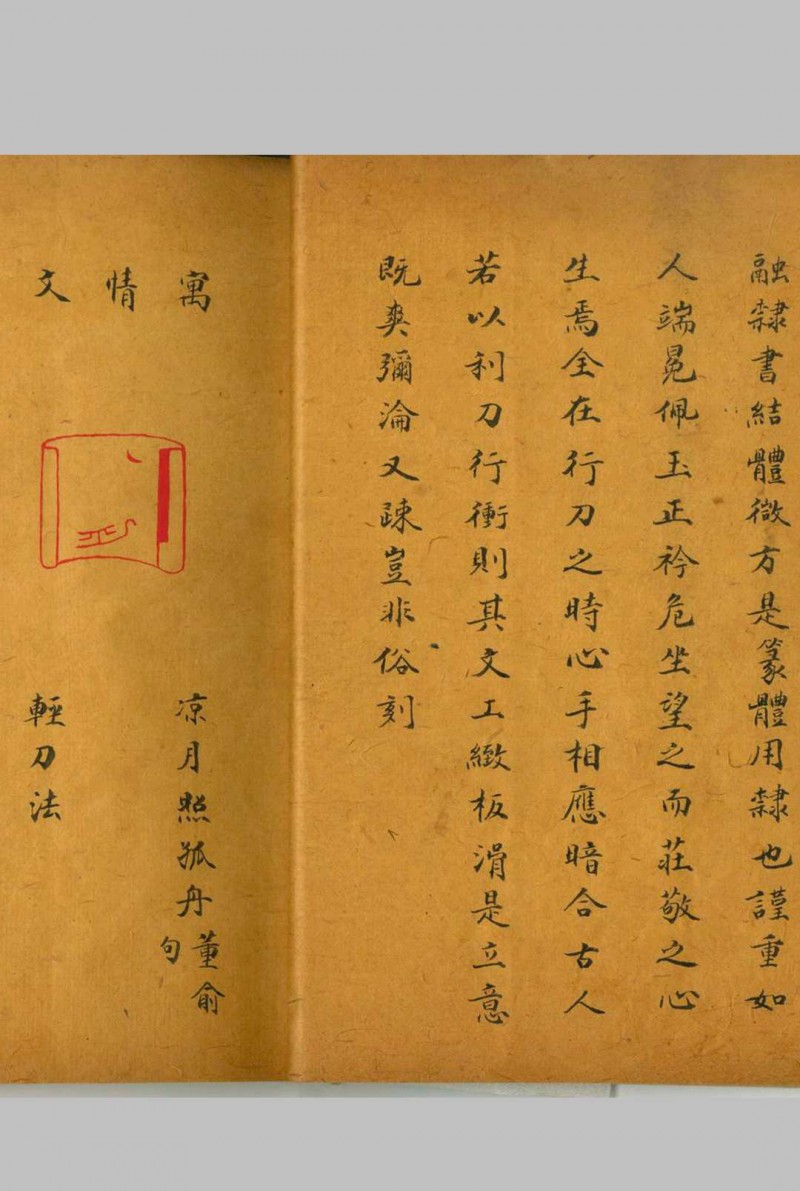 融隸書結體微方是篆體用隸也謹重如
人端冕佩玉正衿危坐望之而莊敬之心
生焉全在行刀之時心手相應暗合古人
若以利刀行衝則其文工緻板涓是立意
既爽彌淪又疎豈非俗刻
寓情文
凉月照孤舟
董俞
句
輕刀法